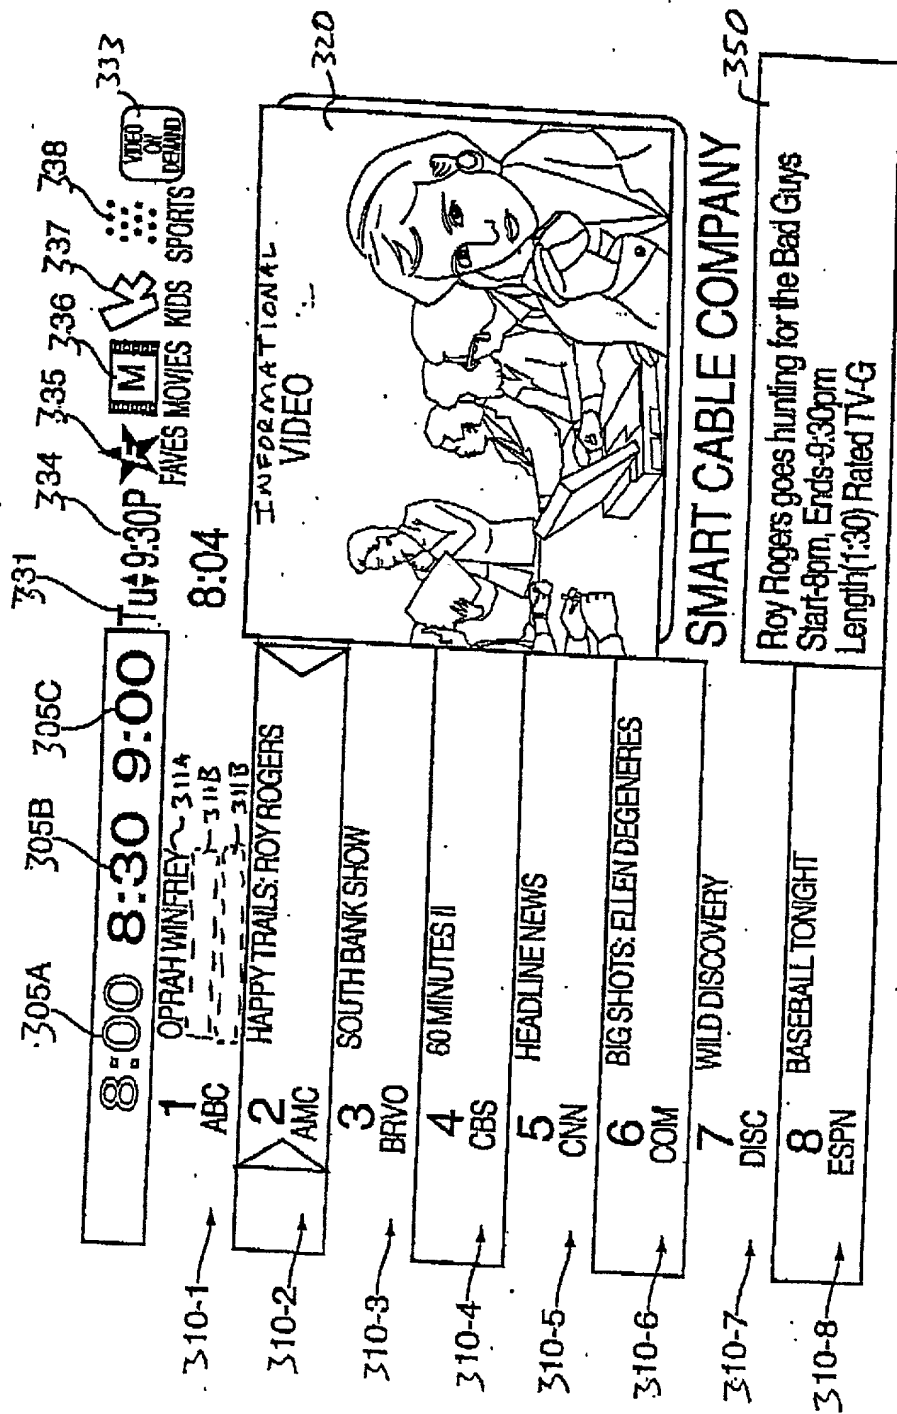 305A
305B
305C
331
334
335
336
337
338
333
8:00 8:30 9:00
Tu 9:30P
F
M
VIDEO
ON
DEMAND
FAVES MOVIES KIDS SPORTS
8:04
310-1
1
ABC
OPRAH WINFREY
311A
311B
311B
310-2
2
AMC
HAPPY TRAILS: ROY ROGERS
310-3
3
BRVO
SOUTH BANK SHOW
310-4
4
CBS
60 MINUTES II
310-5
5
CNN
HEADLINE NEWS
310-6
6
COM
BIG SHOTS: ELLEN DEGENERES
310-7
7
DISC
WILD DISCOVERY
310-8
8
ESPN
BASEBALL TONIGHT
320
INFORMATIONAL
VIDEO
SMART CABLE COMPANY
350
Roy Rogers goes hunting for the Bad Guys
Start-8pm, Ends-9:30pm
Length(1:30) Rated TV-G